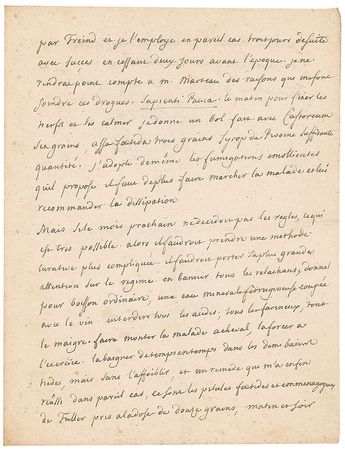 par Freind et je l'employe en pareil cas trois jours de suite
avec succes en cessant deux jours avant l'époque. je ne
rendrai point compte a m. Marteau des raisons qui me font
joindre ces drogues. Sapienti Pauca. le matin pour fixer les
nerfs et les calmer je donne un bol fait avec Castoreum
six grains, assa foetida trois grains Syrop de Pivoine suffisante
quantité. j'adopte de même les fumigations emollientes
qu'il propose. il faut de plus faire marcher la malade et lui
recommander la dissipation
Mais si le mois prochain ne decidoit pas les regles, ce qui
est tres possible. alors il faudroit prendre une methode
curative plus compliquée. il faudroit porter la plus grande
attention sur le regime. en bannir tous les relachans, donner
pour boisson ordinaire, une eau minerale ferrugineuse coupée
avec le vin. interdire tous les acides, tous les farineux, tout
le maigre. faire monter la malade a cheval, la forcer a
l'exercice. la baigner de tems en tems dans les demi bains
tiedes, mais sans l'affoiblir, et un remede qui m'a enfin
reussi dans pareil cas, ce sont les pilules foetides et emmenagogues
de Fuller pris a la dose de douze grains, matin et soir